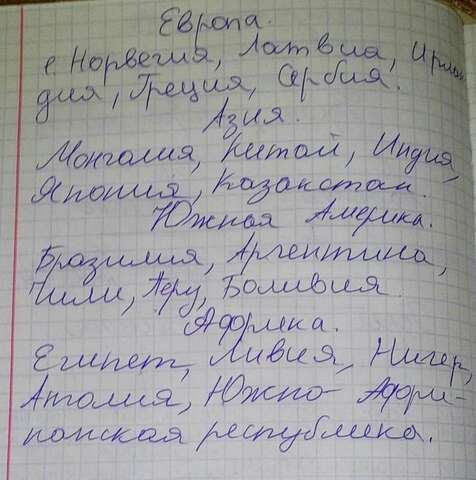 Европа.
г. Норвегия, Латвия, Ирлан
дия, Греция, Сербия.
Азия.
Монголия, Китай, Индия,
Япония, Казакстан.
Южная Америка.
Бразилия, Аргентина,
Чили, Перу, Боливия
Африка.
Египет, Ливия, Нигер,
Аголия, Южно- Афри-
канская республика.